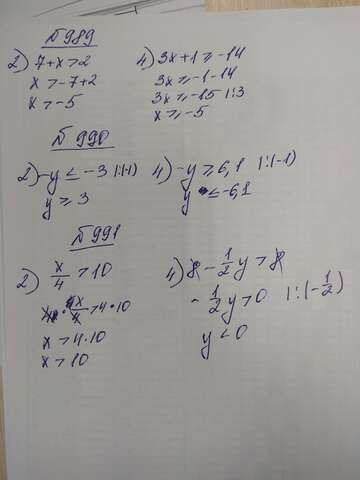 №989
2) 7+x>2
x>-7+2
x>-5
4) 3x+1⩾-14
3x⩾-1-14
3x⩾-15 |:3
x⩾-5
№990
2) -y⩽-3 |:(-1)
y⩾3
4) -y⩾6,1 |:(-1)
y⩽-6,1
№991
2) x/4>10
4x/4>4·10
x>4·10
x>10
4) 8-1/2y>8
-1/2y>0 |:(-1/2)
y<0